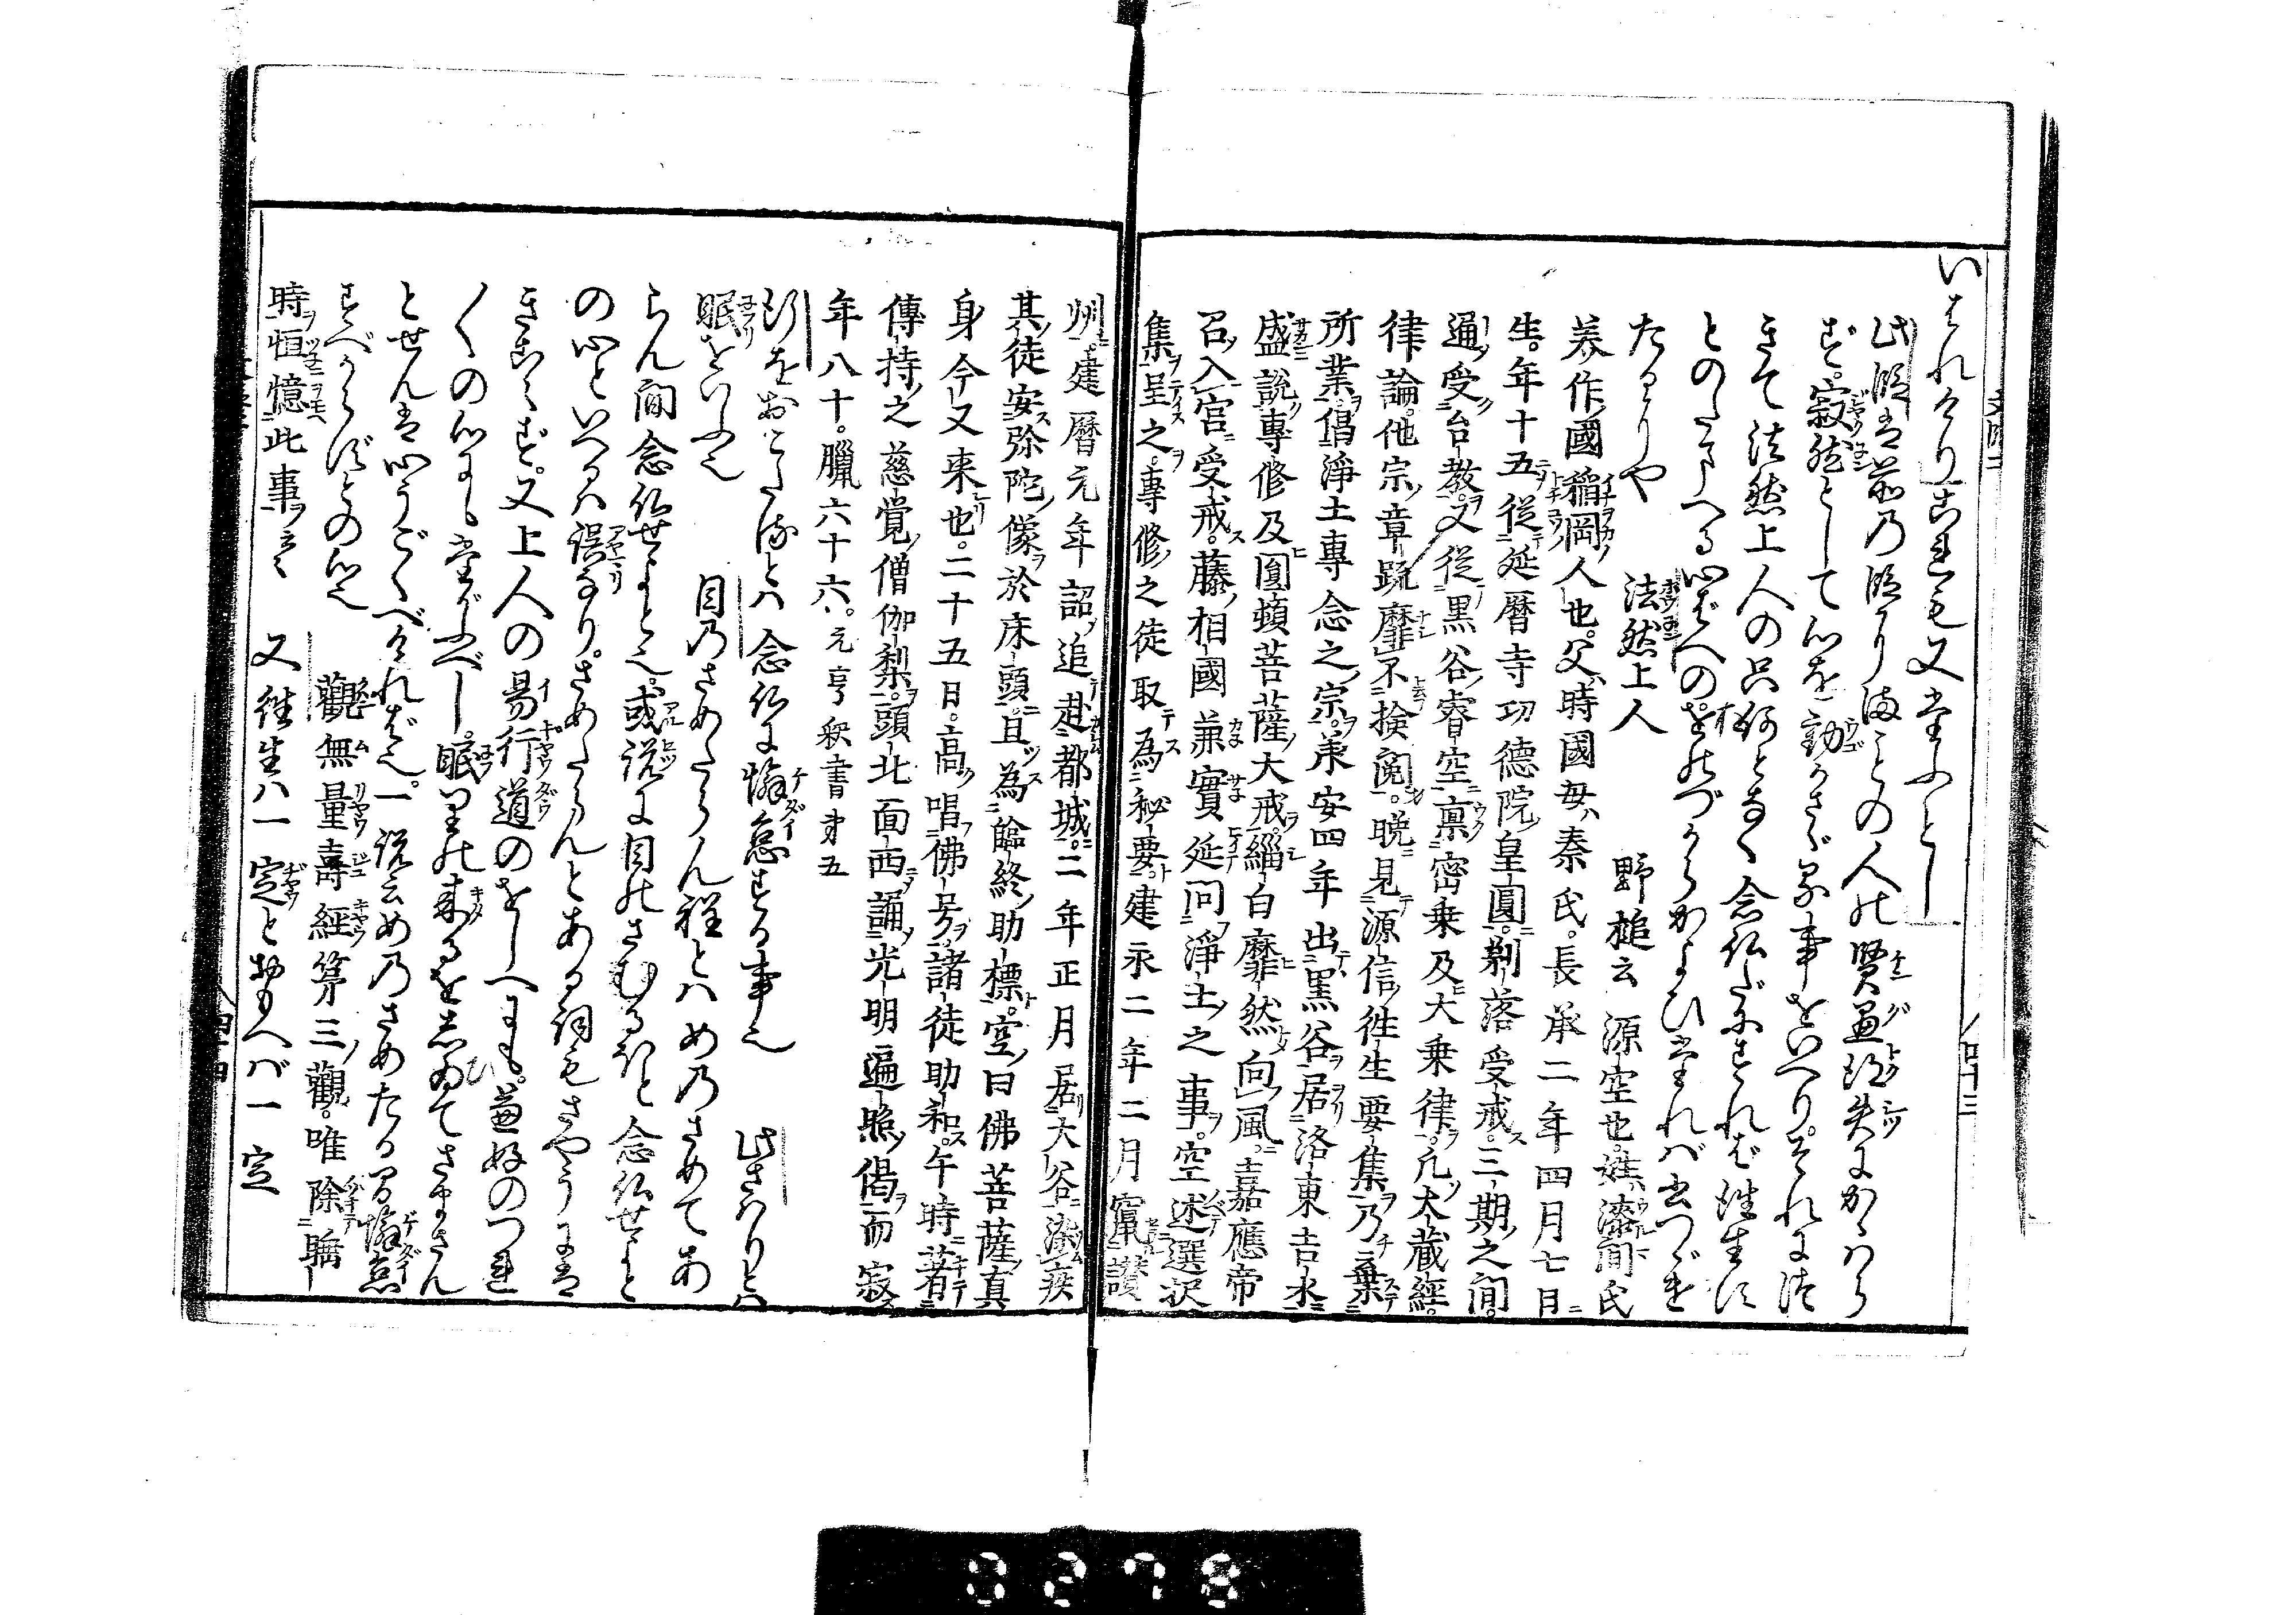 いはれけりこれも又たふとし
此段は前の段りまことの人の賢愚得失にかゝはら
ず。寂然として心を動かさゞる事をいへり。それにつ
きて法然上人の只何となく念仏だにすれば往生す
とのたまへる心ばへのをのづからかよひたれば書つゞけ
たるりや
法然上人 野槌云 源空也。姓漆間氏
美作國稲岡人也。父、時國母、秦氏。長承二年四月七日
生。年十五従延暦寺功德院皇圓。剃落受戒。三期之間。
通受台教。又従黒谷睿空禀密乗及大乗律。凡大蔵經。
律論。他宗章疏靡不撿閲。晩見源信往生要集乃棄
所業倡淨土專念之宗。承安四年出黒谷居洛東吉水
盛說專修及圓頓菩薩大戒。緇白靡然向風。嘉應帝
召入宮受戒。藤相國兼實延問淨土之事。空述選択
集呈之。專修之徒取為秘要。建永二年二月竄讃
州。建暦元年詔追赴都城。二年正月居大谷染疾
其徒安弥陀像於床頭。且為臨終助標。空曰佛菩薩真
身今又来也。二十五日。高唱佛号。諸徒助和。午時著
傳持之慈覚僧伽梨。頭北面西誦光明遍照偈而寂
年八十。臘六十六。元亨釈書第五
行をおこたるとハ 念仏に懈怠する事也 此さはりとハ
眠をいふ也 目のさめたらん程とハ めのさめてあ
らん間念仏せよと也。或説に目のさむるほと念仏せよと
の心といへるハ誤なり。さめたらんとある詞もさやうには
きこえず。又上人の易行道のをしへにも。兼好のつれ
〳〵の心にも たがふべし。眠りの来るをしゐてさまさん
とせんは心うごくべければ也。一説云めのさめたる間懈怠
すべからずとの心也 觀無量壽經第三ノ觀。唯除睡
時恒憶此事云々 又往生ハ一定とおもへバ一定